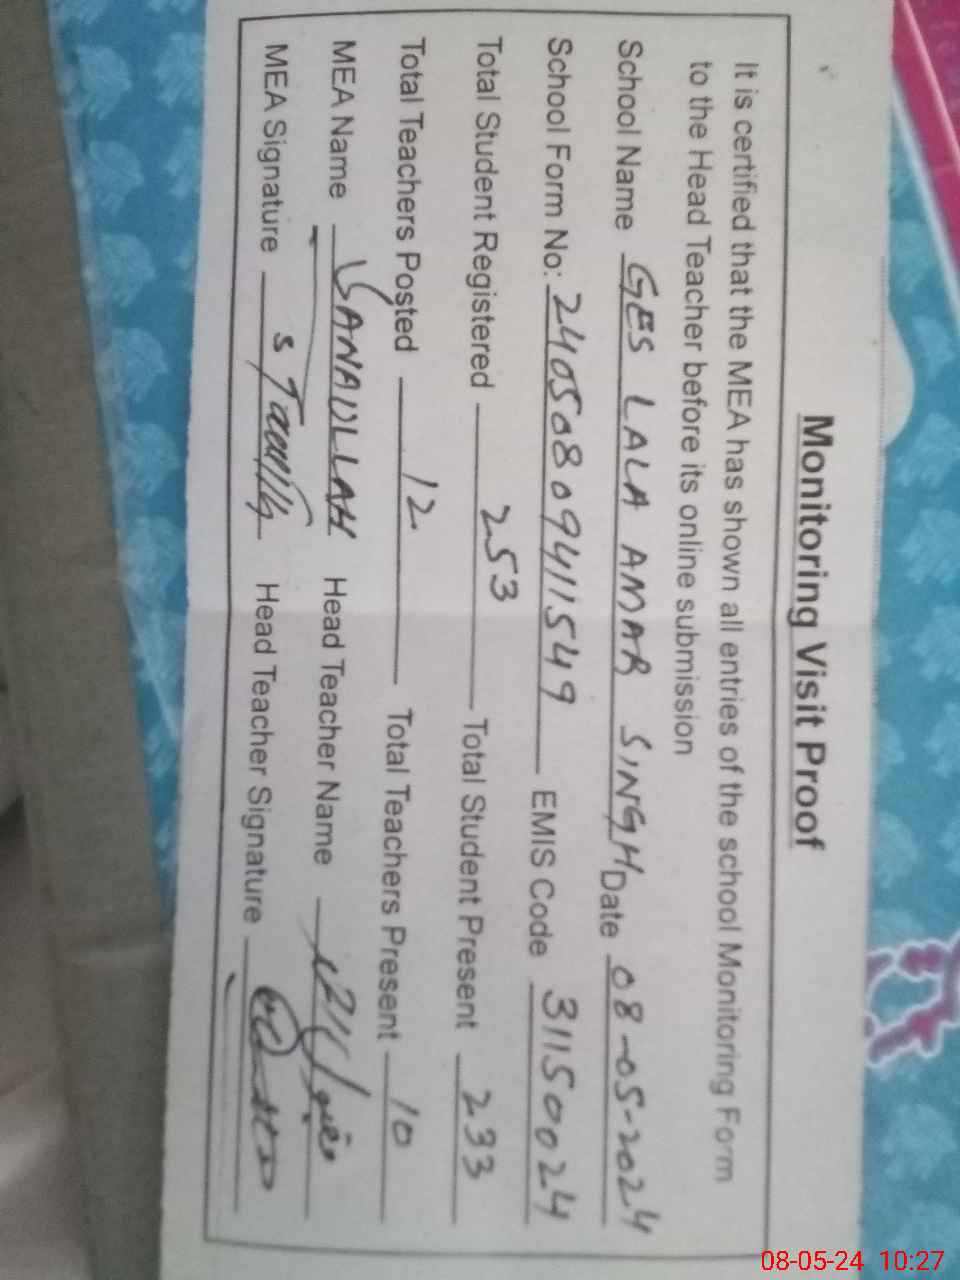 Monitoring Visit Proof
It is certified that the MEA has shown all entries of the school Monitoring Form
to the Head Teacher before its online submission
School Name GES LALA AMAR SINGH Date 08-05-2024
School Form No: 240508094111549 EMIS Code 31150024
Total Student Registered 253 Total Student Present 233
Total Teachers Posted 12 Total Teachers Present 10
MEA Name SANAULLAH Head Teacher Name
MEA Signature Head Teacher Signature
08-05-24 10:27